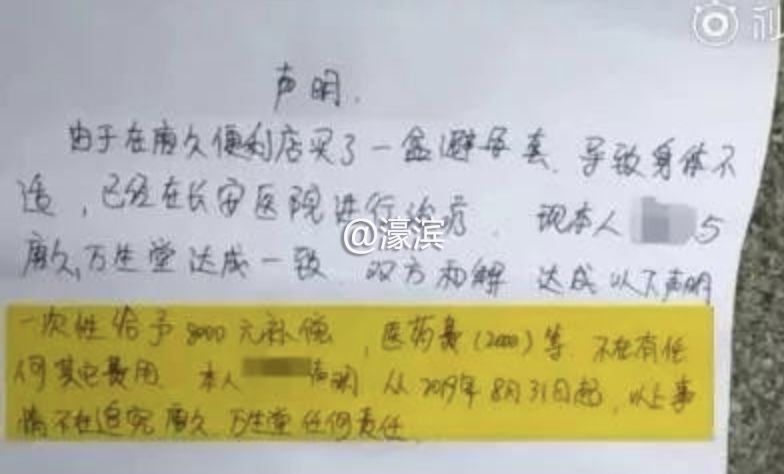 声明.
由于在唐久便利店买了一盒避孕套、导致身体不
适，已经在长安医院进行治疗. 现本人 5
唐久,万生堂达成一致. 双方和解 达成以下声明
一次性给予8000元补偿，医药费(2000)等 不在有任
何其它费用. 本人 声明 从2019年8月31日起，以上事
情不在追究唐久.万生堂任何责任.
@濠滨